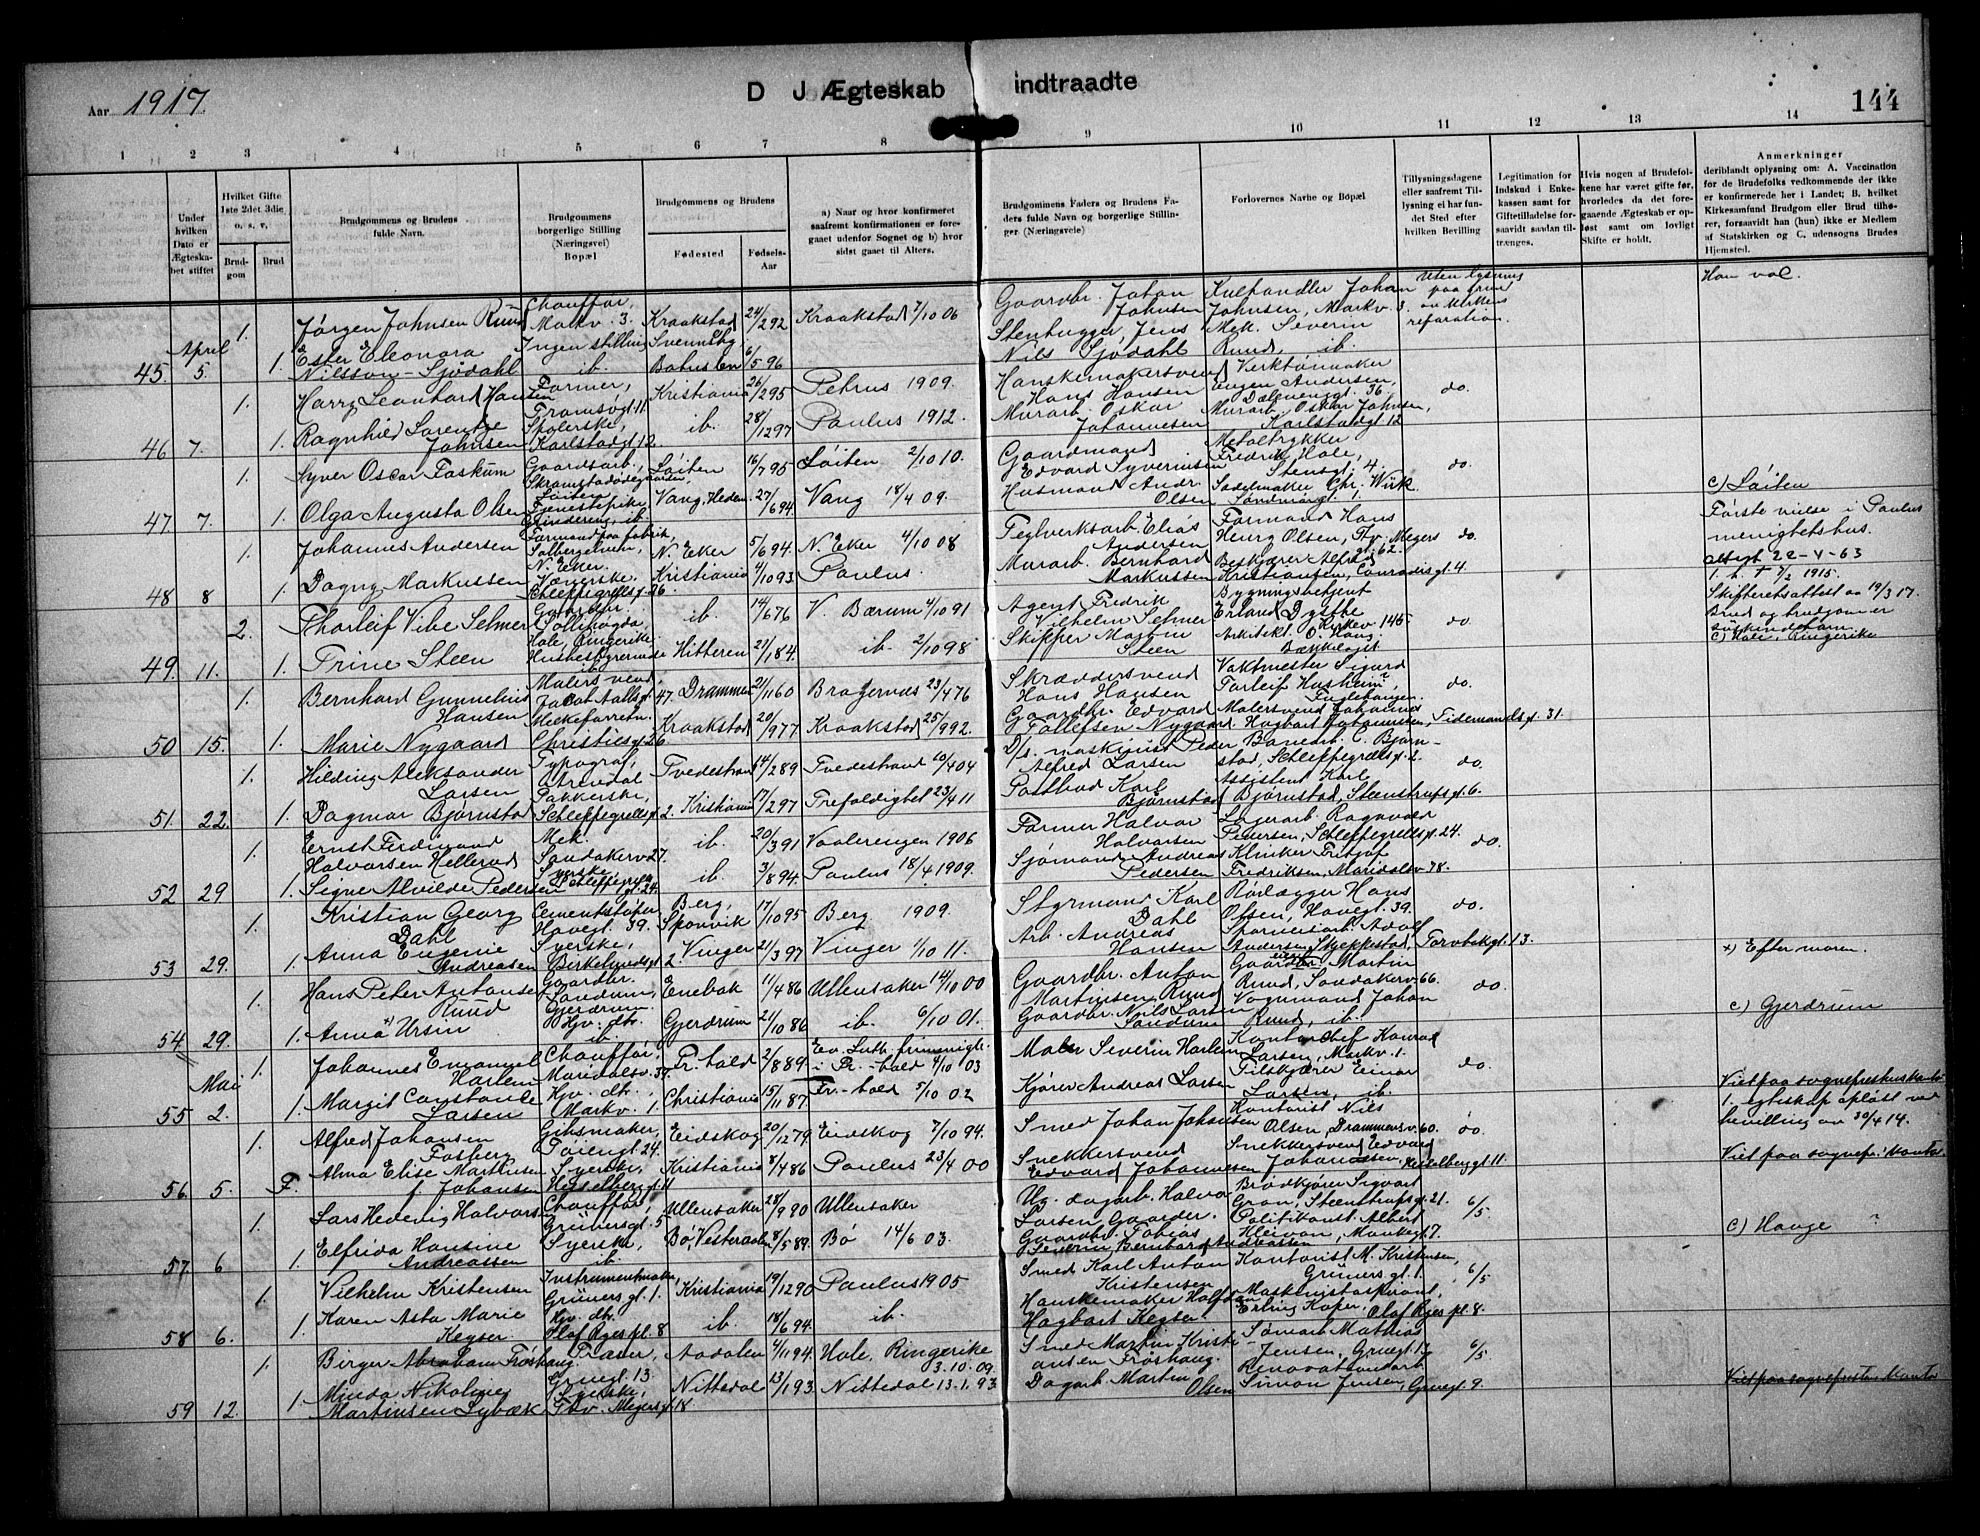 Aar 1917.
D J Ægteskab indtraadte
144
1 2 3 4 5 6 7 8 9 10 11 12 13 14
Under hvilken Dato er Ægteskabet stiftet
Hvilket Gifte 1ste 2det 3die o. s. v.
Brudgom
Brud
Brudgommens og Brudens fulde Navn.
Brudgommens borgerlige Stilling (Næringsvei) Bopæl
Brudgommens og Brudens
Fødested
Fødsels-Aar
a) Naar og hvor konfirmeret saafremt konfirmationen er foregaaet udenfor Sognet og b) hvor sidst gaaet til Alters.
Brudgommens Faders og Brudens Faders fulde Navn og borgerlige Stillinger (Næringsveie)
Forlovernes Navne og Bopæl
Tillysningsdagene eller saafremt Tillysning ei har fundet Sted efter hvilken Bevilling
Legitimation for Indskud i Enkekassen samt for Giftetilladelse forsaavidt saadan tiltrænges.
Hvis nogen af Brudefolkene har været gifte før, hvorledes da det foregaaende Ægteskab er opløst samt om lovligt Skifte er holdt.
Anmerkninger
deriblandt oplysning om: A. Vaccination for de Brudefolks vedkommende der ikke er konfirmerede her i Landet; B. hvilket Kirkesamfund Brudgom eller Brud tilhører, forsaavidt han (hun) ikke er Medlem af Statskirken og C. udensogns Brudes Hjemsted.
1. Jørgen Johnsen Ruud Chauffør, Markv. 3. Kraakstad 24/2 92 Kraakstad 7/10 06 Gaardbr. Johan Johnsen Kulhandler Johan Johnsen, Markv. 3. Uten lysning paa grun av kirkens reparation.
45. April 5. 1. Ester Eleonora Nilsson-Sjødahl Ingen stilling ib. Bohuslen 6/5 96 Stenhugger, Jens Nils Sjødahl Mek. Severin Ruud, ib.
1. Harry Leonhard Hansen Former, Tromsøgt. 11. Kristiania 26/2 95 Petrus 1909. Hanskemakersvend Hans Hansen Verktømaker Andersen, Dælenenggt. 36. do.
46 7. 1. Ragnhild Lorentze Johnsen Spolerske, Karlstadgt. 12. ib. 28/12 97 Paulus 1912. Murarb. Oskar Johannesen Murarb. Oskar Johnsen, Karlstadgt 12
1. Syver Oscar Faskum Gaardsarb., Løiten Løiten 16/7 95 Løiten 2/10 10. Gaardmand Edvard Syvertsen Metaltrykker Fredrik Hole, Stensgt. 4. do.
47 7. 1. Olga Augusta Olsen Tjenestepike ib. Vang, Hedem. 27/6 94. Vang 18/4 09. Husmand Andr. Olsen Sadelmaker Chr. Wiik. c) Løiten
1. Johannes Andersen Formand paa fabrik, Solbergelven, N. Eker. N. Eker 5/6 94. N. Eker 4/10 08 Teglverksarb. Elias Andersen Formand Hans Henry Olsen, Tv. Meyers gt. 62. do. Første vielse i Paulus menighetshus.
48 8 1. Dagny Markussen Væverske. Schleppegrellsgt. 26. Kristiania 4/10 93 Paulus. Murarb. Bernhard Markussen Beskjærer Alfred Kristiansen, Conradisgt. 4
2. Thorleif Vibe Selmer Gaardbr. Hole, Ringerike. ib. 14/6 76 V. Bærum 4/10 91 Agent Fredrik Vilhelm Selmer Bygningsbetjent Erland Dysthe 145. do. 1. h. † 7/2 1915. Skifteretsattest av 19/3 17. Brud og brudgom er søskendebarn.
49. 11. 1. Trine Steen Husbestyrerinde ib. Hitteren 21/1 84. ib. 2/10 98 Skipper Martin Steen Arkitekt O. Hans. c) Hole, Ringerike
1. Bernhard Gunnelius Hansen Malersvend, Jacob Aallsgt. 47 Drammen 21/11 60 Bragernæs 23/4 76 Skræddersvend Hans Hansen Vaktmester Sigurd Torleif Husheim do.
50 15. 1. Marie Nygaard Melkeforretn. Christiesgt. 26 Kraakstad 20/9 77 Kraakstad 25/9 92. Gaardbr. Edvard Tollefsen Nygaard Malersvend Johannes Hagbart Johannesen, Tidemandsgt. 31.
1. Hilding Aleksander Larsen Typograf, Arendal Tvedestrand 14/2 89 Tvedestrand 10/4 04 D/s. maskinist Peder Alfred Larsen Banearb. C. Bjørnstad, Schleppegrellsgt. 2. do.
51. 22. 1. Dagmar Bjørnstad Pakkerske, Schleppegrellsgt. 2. Kristiania 17/2 97 Trefoldighet 23/4 11 Postbud Karl Bjørnstad Assistent Karl Bjørnstad, Steenstrupsgt. 6.
1. Ernst Ferdinand Halvorsen Hellerud Mek. Sandakerv. 27. ib. 20/3 91 Vaalerengen 1906 Former Halvor Halvorsen Lagerarb. Ragnvald Pedersen, Schleppegrellsgt. 24. do.
52 29 1. Signe Alvilde Pedersen Syerske Schleppegrellsgt. 24. ib. 3/8 94. Paulus 18/4 1909. Sjømand Andreas Pedersen Klinker Fritjof Fredriksen, Maridalsv 78.
1. Kristian Georg Dahl Cementstøber Havegt. 39. Berg, Sponvik 17/10 95 Berg 1909. Styrmand Karl Dahl Rørlægger Hans Olsen, Havegt. 39. do.
53 29. 1. Anna Eugenie Andreasen Syerske, Birkelundsgt. 2 Vinger 21/3 97 Vinger 1/10 11. Arb. Andreas Hansen Sporveisarb. Adolf Andersen Skjeppestad, Torvbakgt. 13.
1. Hans Peter Antonsen Ruud Gaardbr. Gjerdrum. Enebak 11/4 86 Ullensaker 14/10 00 Gaardbr. Anton Martinsen Ruud Martin Ruud, Sandakerv. 66. do. x) Efter moren.
54 29. 1. Anna x) Ursin Hjv. dtr. ib. Gjerdrum 21/10 86 ib. 6/10 01. Gaardbr. Nils Larsen Vognmand Johan Ruud, ib. c) Gjerdrum
1. Johannes Emanuel Harlem Chauffør, Maridalsv. Fr. hald 2/8 89. Ev. Luth. frimenigh. i Fr.-hald 4/10 03 Maler Severin Harlem Kontorchef Konrad Larsen, Markv. 1. do.
55 Mai 2. 1. Margit Constance Larsen Hjv. dtr. Markv. 1. Christiania 15/11 87 Fr.-hald 5/10 02 Kjører Andreas Larsen Tilskjærer Einar Larsen, ib.
1. Alfred Johansen Fosberg Gibsmaker, gt. 24. Eidskog 20/12 79 Eidskog 7/10 94. Smed Johan Johansen Kontorist Nils Olsen, Drammensv. 60. do. 1. egteskap opløst ved bevilling av 30/4 14.
56. 5. F. Alma Elise Markussen f. Johansen Syerske, Heselberggt. 11 Kristiania 8/4 86 Paulus 23/4 00 Snekkersvend Edvard Johannesen Snekkersvend Edvard Johannessen, Heselberggt. 11.
1. Lars Hedevig Halvorsen Chauffør, Grünersgt. 5 Ullensaker 28/9 90 Ullensaker Ug. dagarb. Halvor Larsen Gaarder. Brødkjører Sigvart Gran, Steenstrupsgt. 21. 6/5
57. 6 1. Elfrida Hansine Andreassen Syerske, ib. Bø, Vesteraalen 8/5 89. Bø 14/6 03. Gaardbr. Tobias Severin Bernhard Andreassen Politikonst. Albert Kleivan, Munkegt. 7. c) Hauge ?
1. Vilhelm Kristensen Instrumentmaker, Grünersgt. 1. Kristiania 19/12 90 Paulus 1905 Smed Karl Anton Kristensen Kontorist M. Kristensen, Grünersgt. 1. 6/5
58 6. 1. Karen Asta Marie Keyser Hjv. dtr. Olaf Ryes pl. 8 ib. 18/6 94. ib. Hanskemaker Halfdan Hagbart Keyser Maskinistaspirant, Erling Kaper, Olaf Ryes pl. 8.
1. Birger Abraham Frøshaug gt. 13. Aadalen 4/11 94 Hole, Ringerike 3.10.09. Smed Martin Kristiansen Frøshaug. Sømarb. Mathias Jensen, Gruegt. 1. 6/5
59 12. 1. Minda Nikoline Martinsen Lybæk Syerske, Thv. Meyersgt. 18 Nittedal 13/1 93 Nittedal 13.1.93. Dagarb. Martin Olsen Renovationsarb. Simon Jensen, Gruegt. 9.